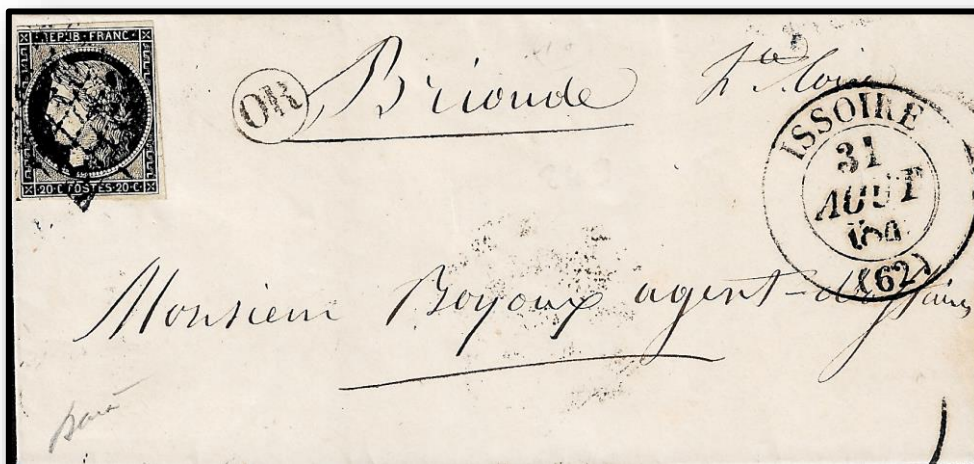 REPUB. FRANC.
20·C POSTES·20·C
OR
Brioude hte Loire
ISSOIRE
31
AOUT
(62)
Monsieur Boyoux agent-d'affaires